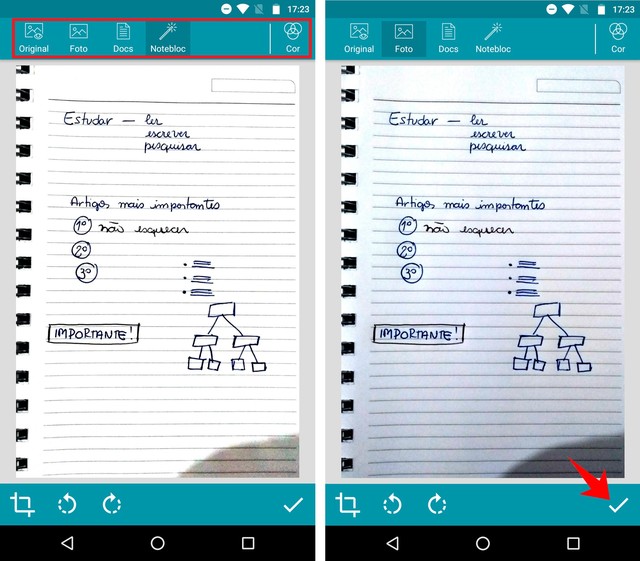 17:23
Original Foto Docs Notebloc Cor
Estudar — ler
escrever
pesquisar
Artigos mais importantes
1º não esquecer
2º
3º
IMPORTANTE!
17:23
Original Foto Docs Notebloc Cor
Estudar — ler
escrever
pesquisar
Artigos mais importantes
1º não esquecer
2º
3º
IMPORTANTE!